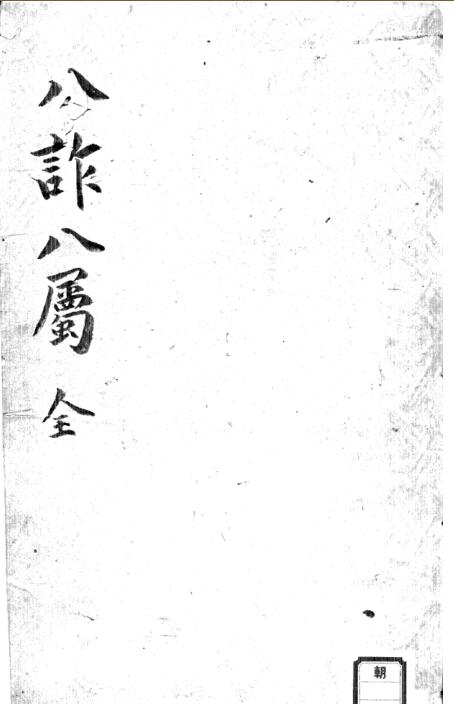 八詐八属 全
朝